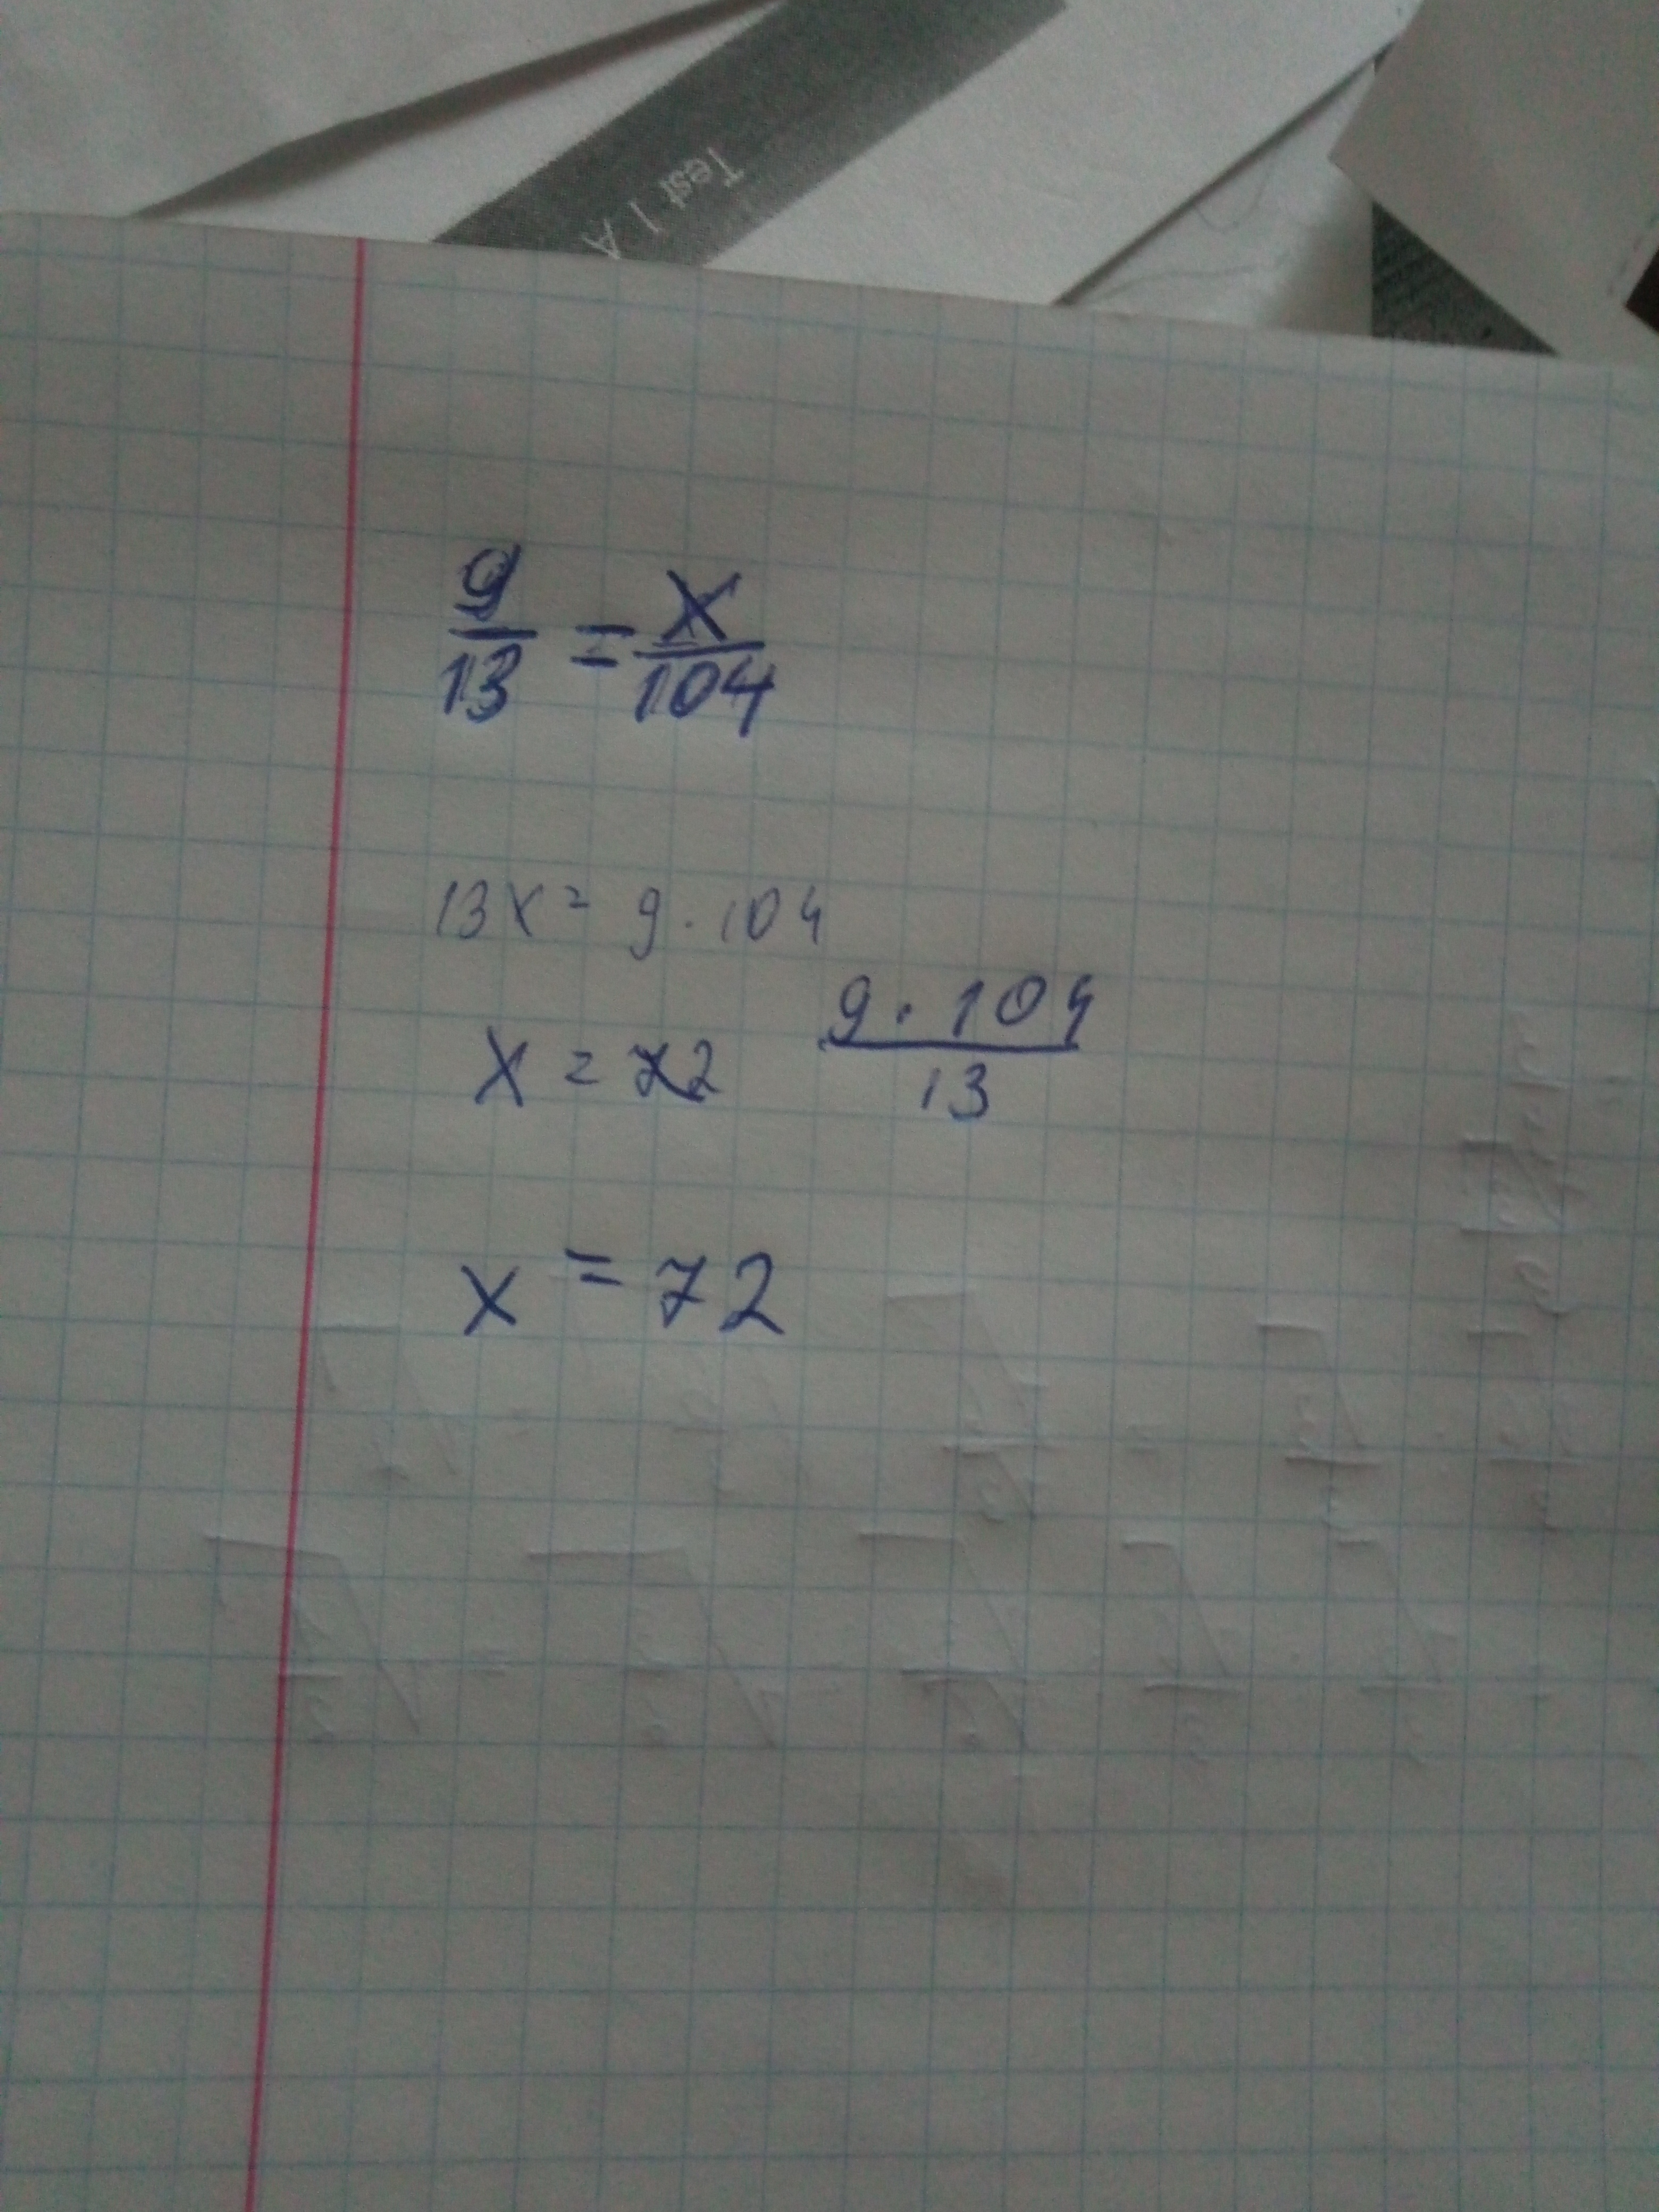 Test 1 A
9/13 = x/104
13x = 9 · 104
x = 72 9 · 104/13
x = 72